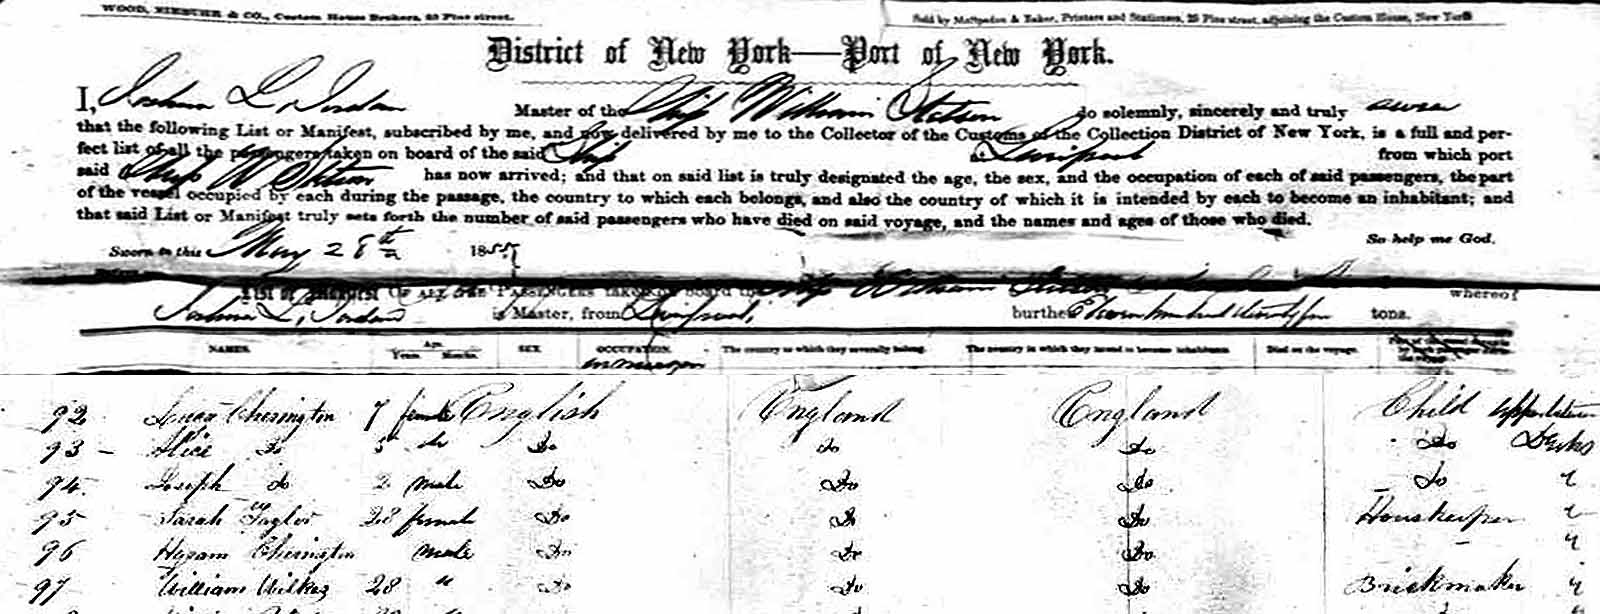 WOOD, NIEBUHR & CO., Custom House Brokers, 23 Pine street.
Sold by McSpedon & Baker, Printers and Stationers, 25 Pine street, adjoining the Custom House, New York
District of New York—Port of New York.
I, Joshua L. Jordan Master of the Ship William Stetson do solemnly, sincerely and truly swear
that the following List or Manifest, subscribed by me, and now delivered by me to the Collector of the Customs of the Collection District of New York, is a full and per-
fect list of all the passengers taken on board of the said Ship at Liverpool from which port
said Ship W Stetson has now arrived; and that on said list is truly designated the age, the sex, and the occupation of each of said passengers, the part
of the vessel occupied by each during the passage, the country to which each belongs, and also the country of which it is intended by each to become an inhabitant; and
that said List or Manifest truly sets forth the number of said passengers who have died on said voyage, and the names and ages of those who died.
So help me God.
Sworn to this May 28th 1855
List or Manifest OF ALL THE PASSENGERS taken on board the Ship William Stetson whereof
Joshua L. Jordan is Master, from Liverpool, burthen Eleven hundred tons.
NAMES. Age. Years. Months. SEX OCCUPATION. The country to which they severally belong. The country in which they intend to become inhabitants. Died on the voyage.
92 Cherington 7 female English England England Child
93 – Alice Do 5 do Do Do Do Do Decks
94 Joseph do 2 male Do Do Do Do "
95 Sarah Taylor 28 female Do Do Do Housekeeper "
96 Hyram Cherington male Do Do Do – "
97 William Wilkes 28 " Do Do Do Brickmaker "